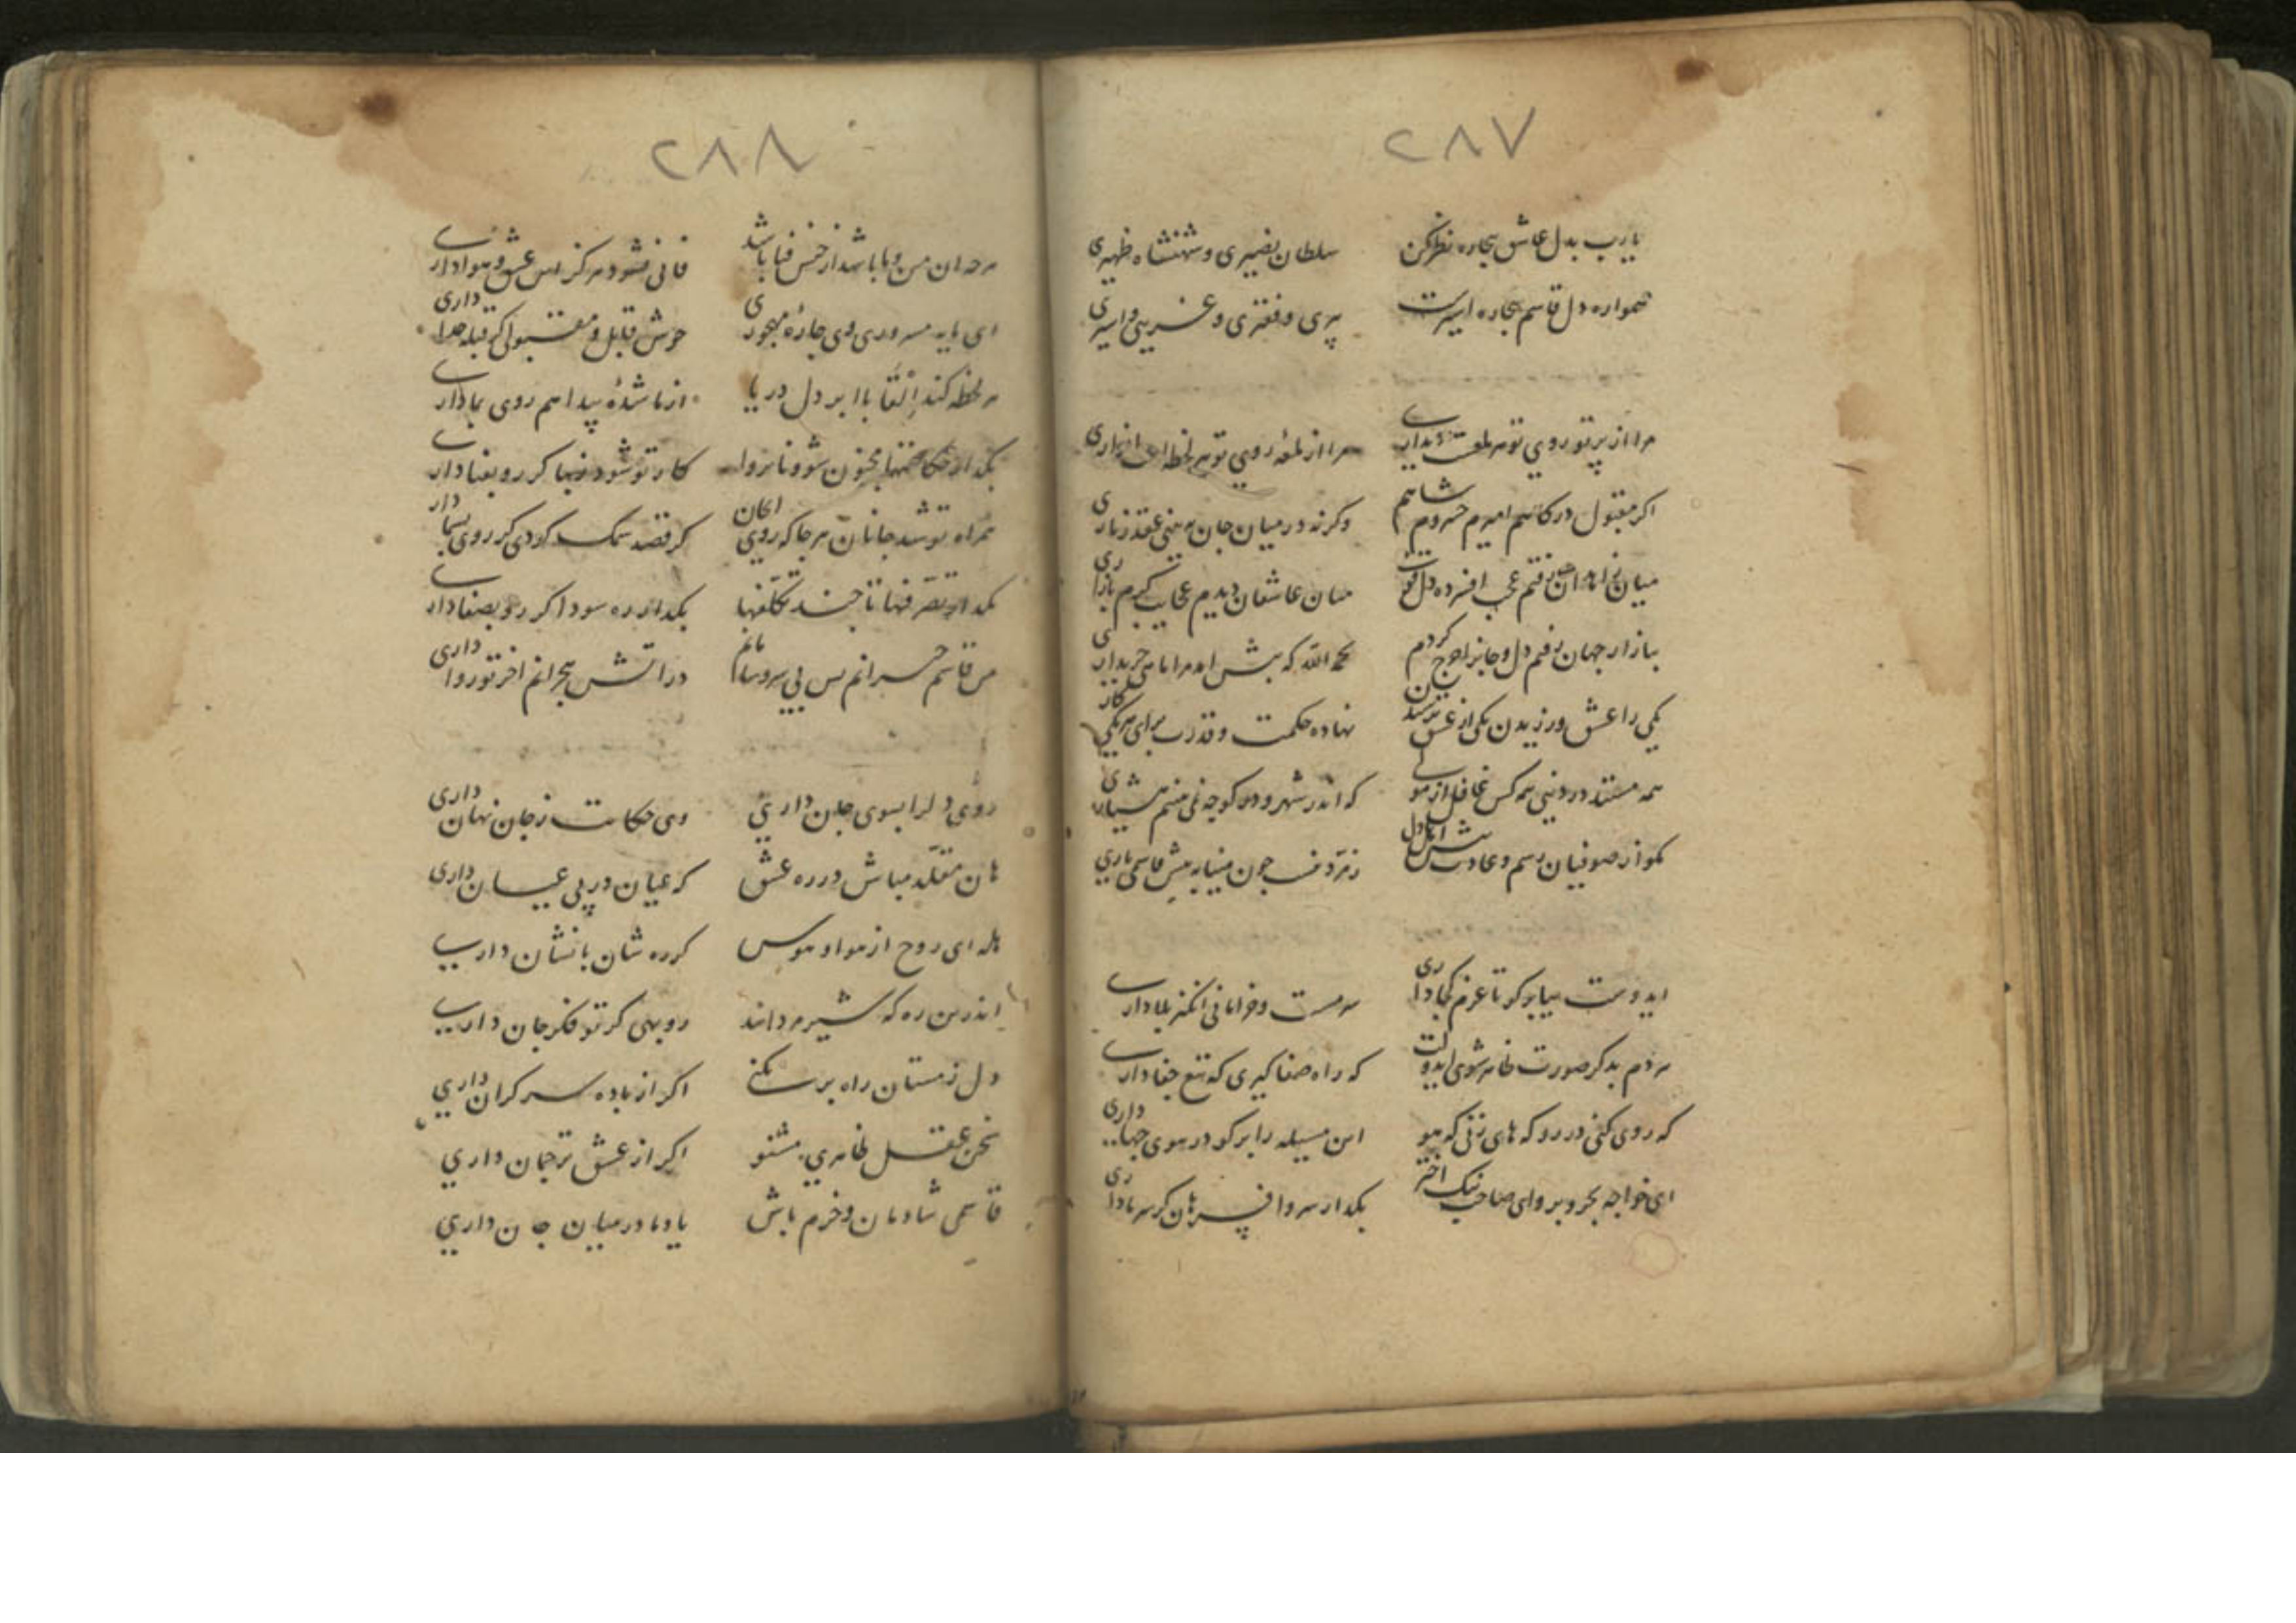 ۲۸۷
یارب بدل عاشق بیچاره نظر کن سلطان نصیری و شهنشاه ظهیری
همواره دل قاسم بیچاره اسیرست پیری و فقیری و غریبی و اسیری
مرا از پرتو روی تو هر دیداری مرا از لمعه روی تو هر لحظه
اکر مقبول درکاهم امیرم خسروم شاهم وکرنه در میان جان به بینی عقد زناری
میان زاهدان رفتم عجب افسرده دل میان عاشقان دیدم عجایب کرم بازاری
ببازار جهان رفتم دل و جانرا کردم بحمدالله که پیش امد مرا خریداری
یکی را عشق ورزیدن یکی از عشق ترسیدن نهاده حکمت و قدرت برای هر یکی کاری
همه مستند در دنیی همه کس غافل از مولی که اندر شهر و در کوچه نمی بینم هشیاری
مکو از صوفیان رسم و عادت پیش اهل دل زمرد چون مینا به پیش قاسمی باری
ایدوست بیا برکو تا عزم کجا داری سرمست و خرامانی انکیز بلا داری
هر دم بدکر صورت ظاهر شوی ایدوست که راه صفا کیری که تیغ جفا داری
که روی کنی در رو که های زنی که هو این مسیله را برکو در هوی چها داری
ای خواجه بحر و بر وای صاحب نیک اختر بکدار سر و افسر هان کر سر ما داری
۲۸۸
هر جه ان من و ما باشد از جنس فنا باشد فانی نشود هرکز این عشق و هوا داری
ای مایه مسروری وی چاره مهجوری خوش قابل و مقبولی کر قبله خدا داری
هر لحظه کند القا با ابر دل دریا از ما شده پیدا هم روی بما داری
بکدار حکایتها مجنون شو و ناپروا کار تو شود زیبا کر رو بفنا داری
همراه تو شد جانان هر جا که روی کر قصد سمک کردی کر روی سما داری
بکدار تصرفها تا چند تکلفها بکدار ره سودا کر رو بصفا داری
من قاسم حیرانم بس بی سر و سامانم در اتش هجرانم اخر تو روا داری
روی دل را بسوی جان داری وی حکایت ز جان نهان داری
هان مقلد مباش در ره عشق که عیان در پی عیان داری
هله ای روح از هوا و هوس کر ره شان با نشان داری
اندرین ره که شیر مردانند روبهی کر تو فکر جان داری
دل ز مستان راه بر نکنی اکر از باده سر کران داری
سخن عقل ظاهری مشنو اکر از عشق ترجمان داری
قاسمی شادمان و خرم باش یاد ما در میان جان داری